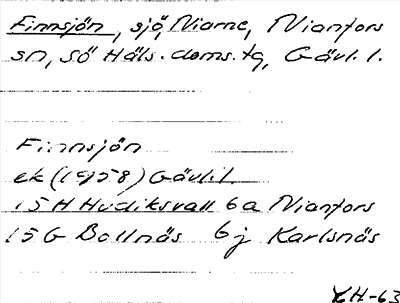 Finnsjön, sjö, Niarne, Nianfors
sn, Sö Häls. doms. tg, Gävl. l.
Finnsjön
ek (1958) Gävl. l.
15 H Hudiksvall 6a Nianfors
15 G Bollnäs 6j Karlsnäs